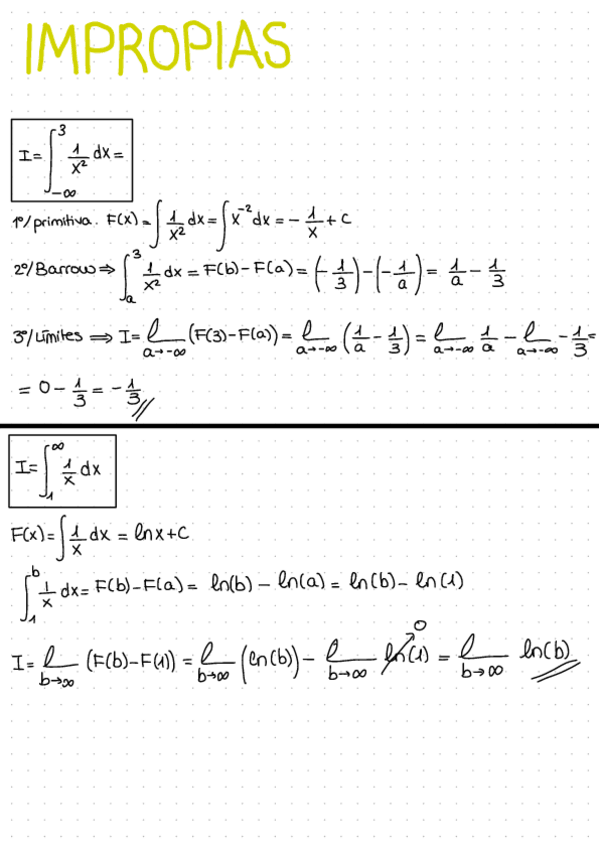 IMPROPIAS
I = ∫_{-∞}^{3} 1/x² dx =
1º/primitiva. F(x) = ∫ 1/x² dx = ∫ x⁻² dx = - 1/x + c
2º/Barrow ⇒ ∫_{a}^{3} 1/x² dx = F(b) - F(a) = (- 1/3) - (- 1/a) = 1/a - 1/3
3º/Límites ⇒ I = l_{a→-∞} (F(3) - F(a)) = l_{a→-∞} (1/a - 1/3) = l_{a→-∞} 1/a - l_{a→-∞} - 1/3 =
= 0 - 1/3 = - 1/3 //
I = ∫_{1}^{∞} 1/x dx
F(x) = ∫ 1/x dx = ln x + c
∫_{1}^{b} 1/x dx = F(b) - F(a) = ln(b) - ln(a) = ln(b) - ln(1)
I = l_{b→∞} (F(b) - F(1)) = l_{b→∞} (ln(b)) - l_{b→∞} ln(1) 0 = l_{b→∞} ln(b)